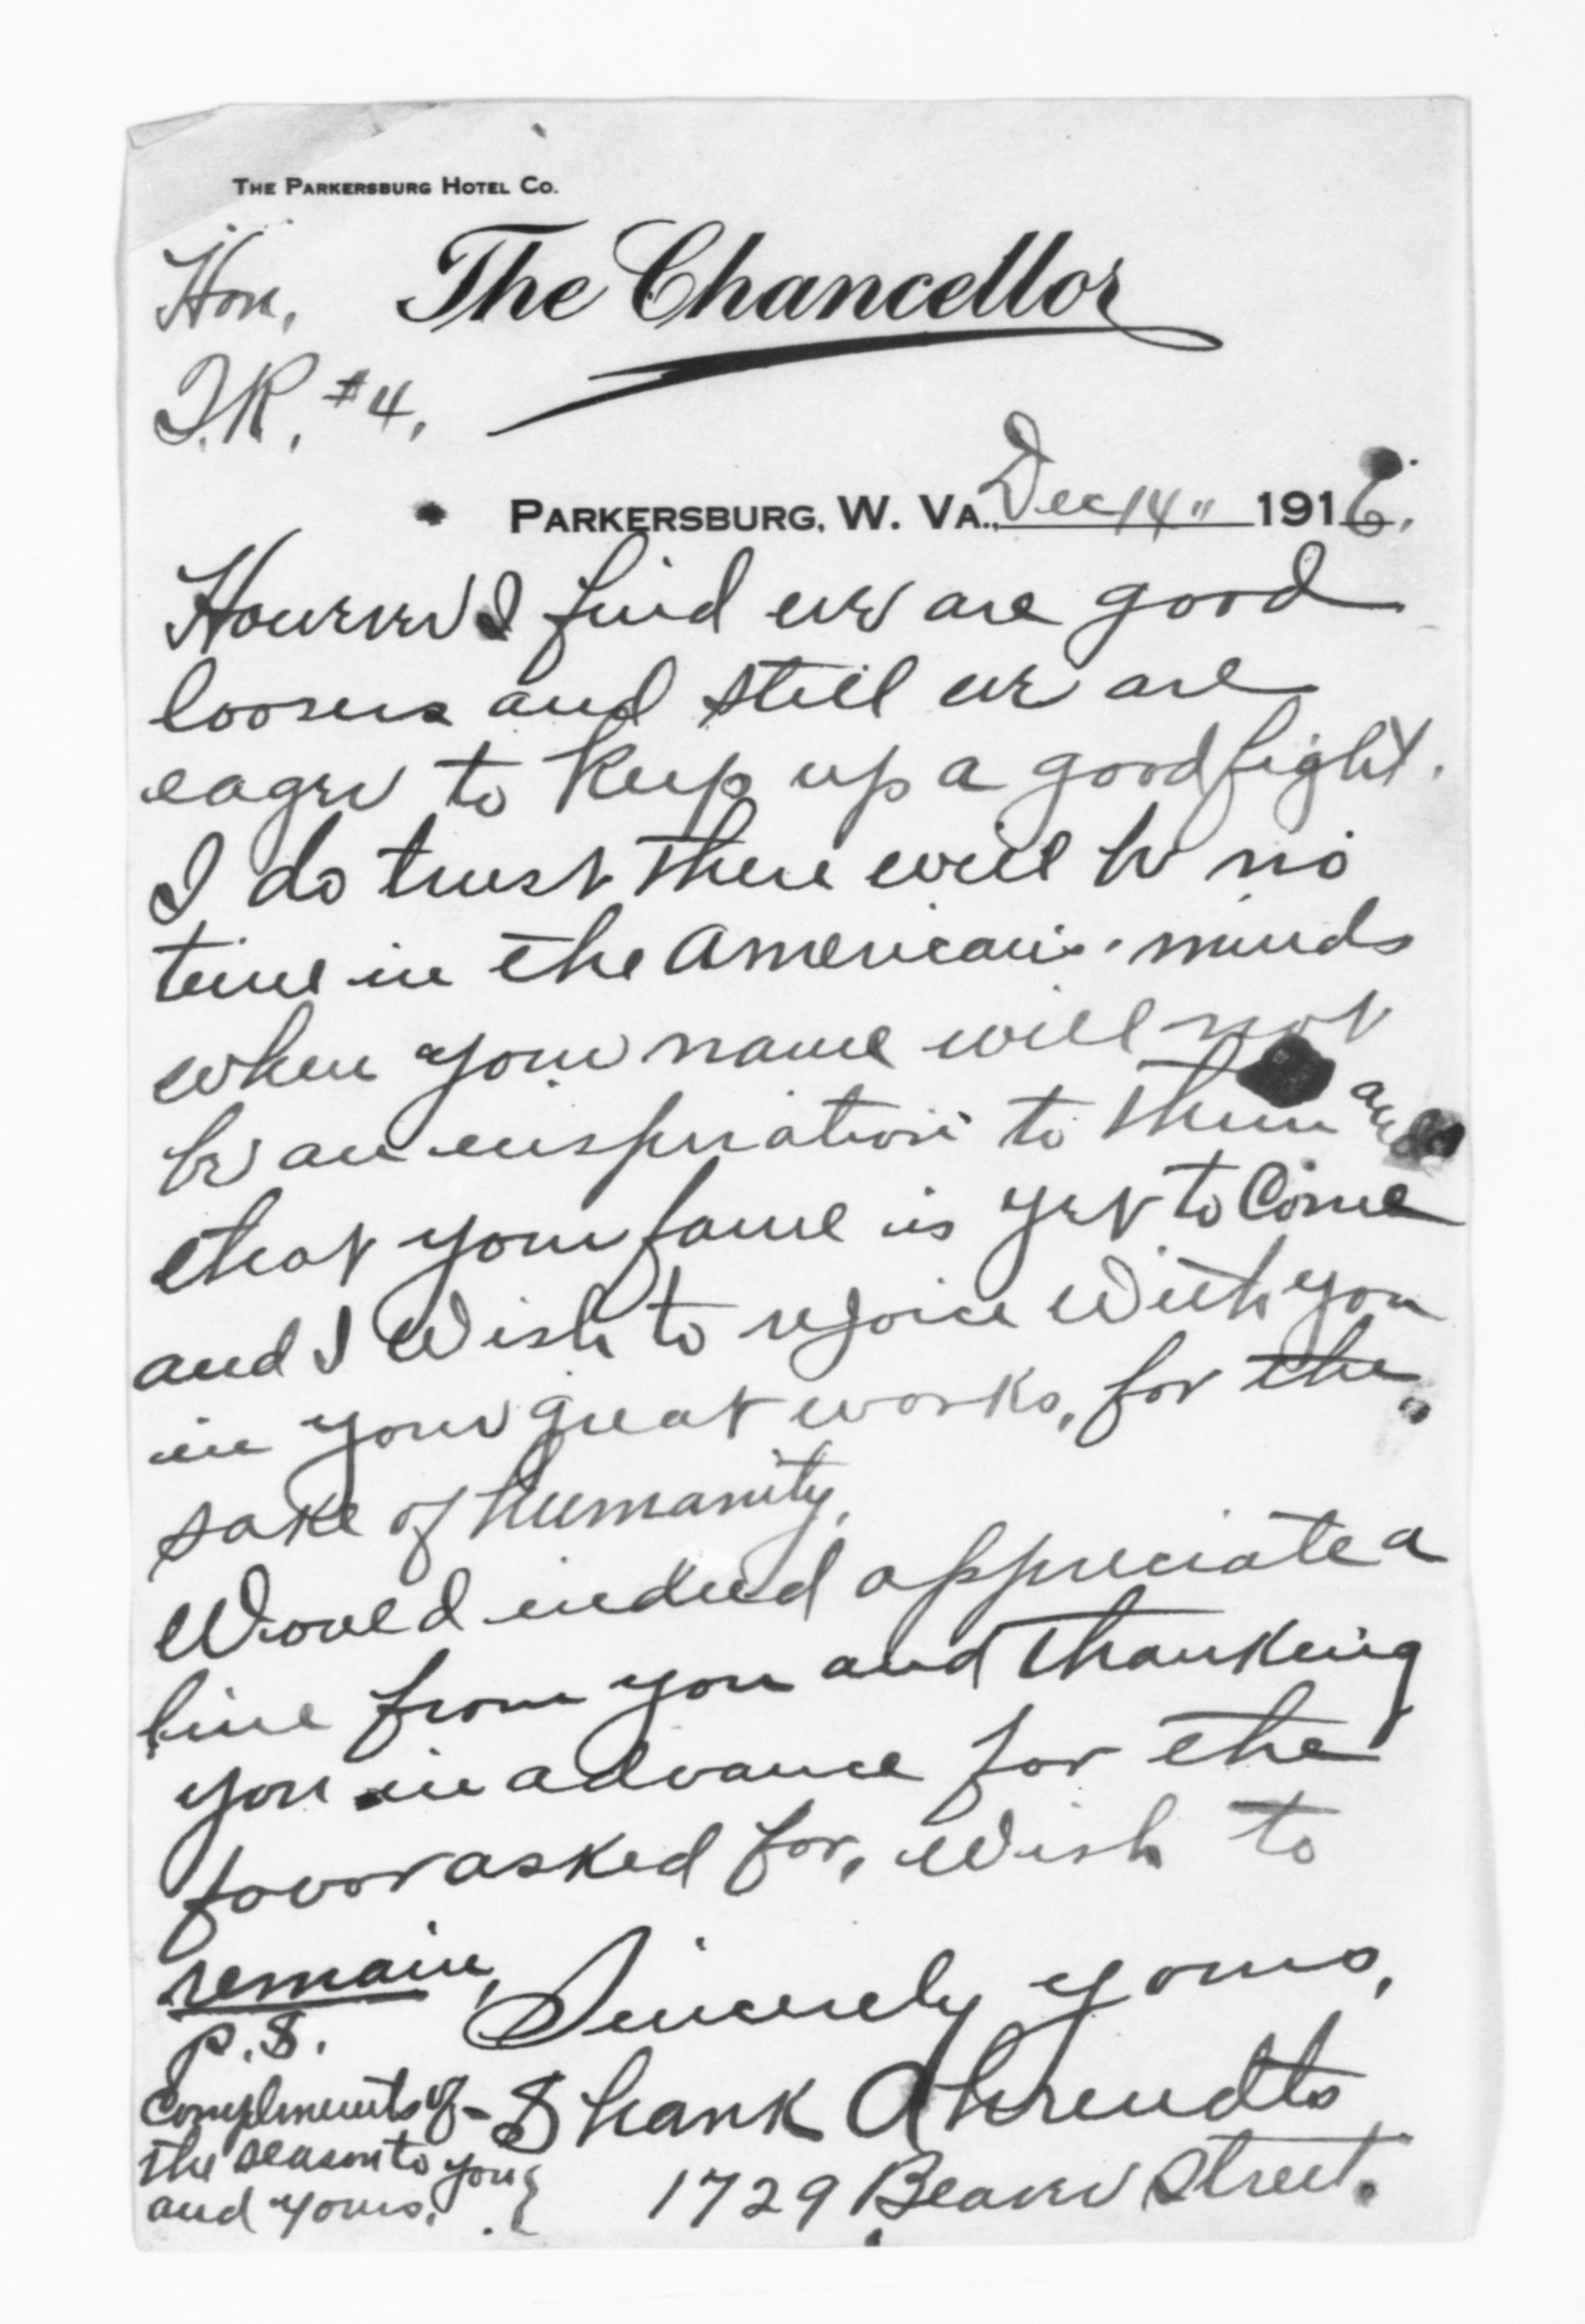 THE PARKERSBURG HOTEL CO.
Hon, The Chancellor
T.R. #4,
PARKERSBURG, W. VA., Dec 14" 1916.
However I find we are good
loosers and still we are
eager to keep up a good fight.
I do trust there will be no
time in the American's minds
when your name will not
be an enspiration to them and
that your fame is yet to come
and I wish to rejoice with you
in your great works, for the
sake of humanity,
Would indeed appreciate a
line from you and thanking
you in advance for the
favor asked for, wish to
remain,
Sincerely yours,
Shank Ahrendts
1729 Beaver Street.
P.S.
Compliments of
the season to you
and yours.